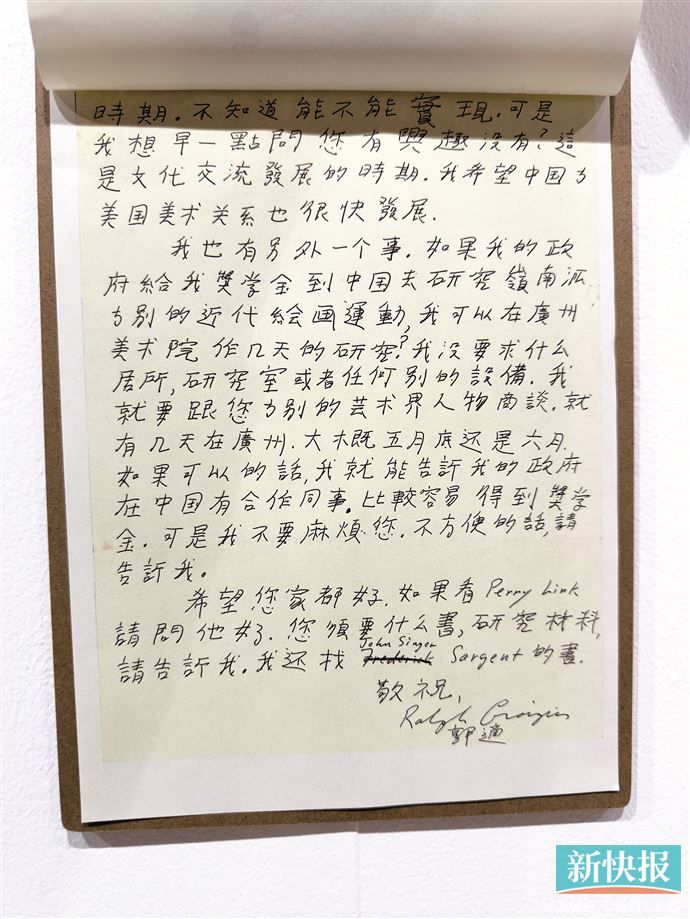 時期. 不知道能不能實現. 可是
我想早一點問您有興趣没有? 這
是文化交流發展的時期. 我希望中国与
美国美术关系也很快發展.
我也有另外一个事. 如果我的政
府給我奬学金到中国去研究嶺南派
与别的近代绘画運動, 我可以在廣州
美术院作几天的研究? 我没要求什么
居所, 研究室或者任何别的設備. 我
就要跟您与别的芸术界人物商談. 就
有几天在廣州. 大木既五月底还是六月.
如果可以的話, 我就能告訢我的政府
在中国有合作同事. 比較容易得到奬学
金. 可是我不要麻煩您. 不方便的話, 請
告訢我。
希望您家都好. 如果看 Perry Link
請問他好. 您须要什么書, 研究材料,
請告訢我. 我还找 John Singer Frederick Sargent 的書.
敬祝,
Ralph
郭適
新快报